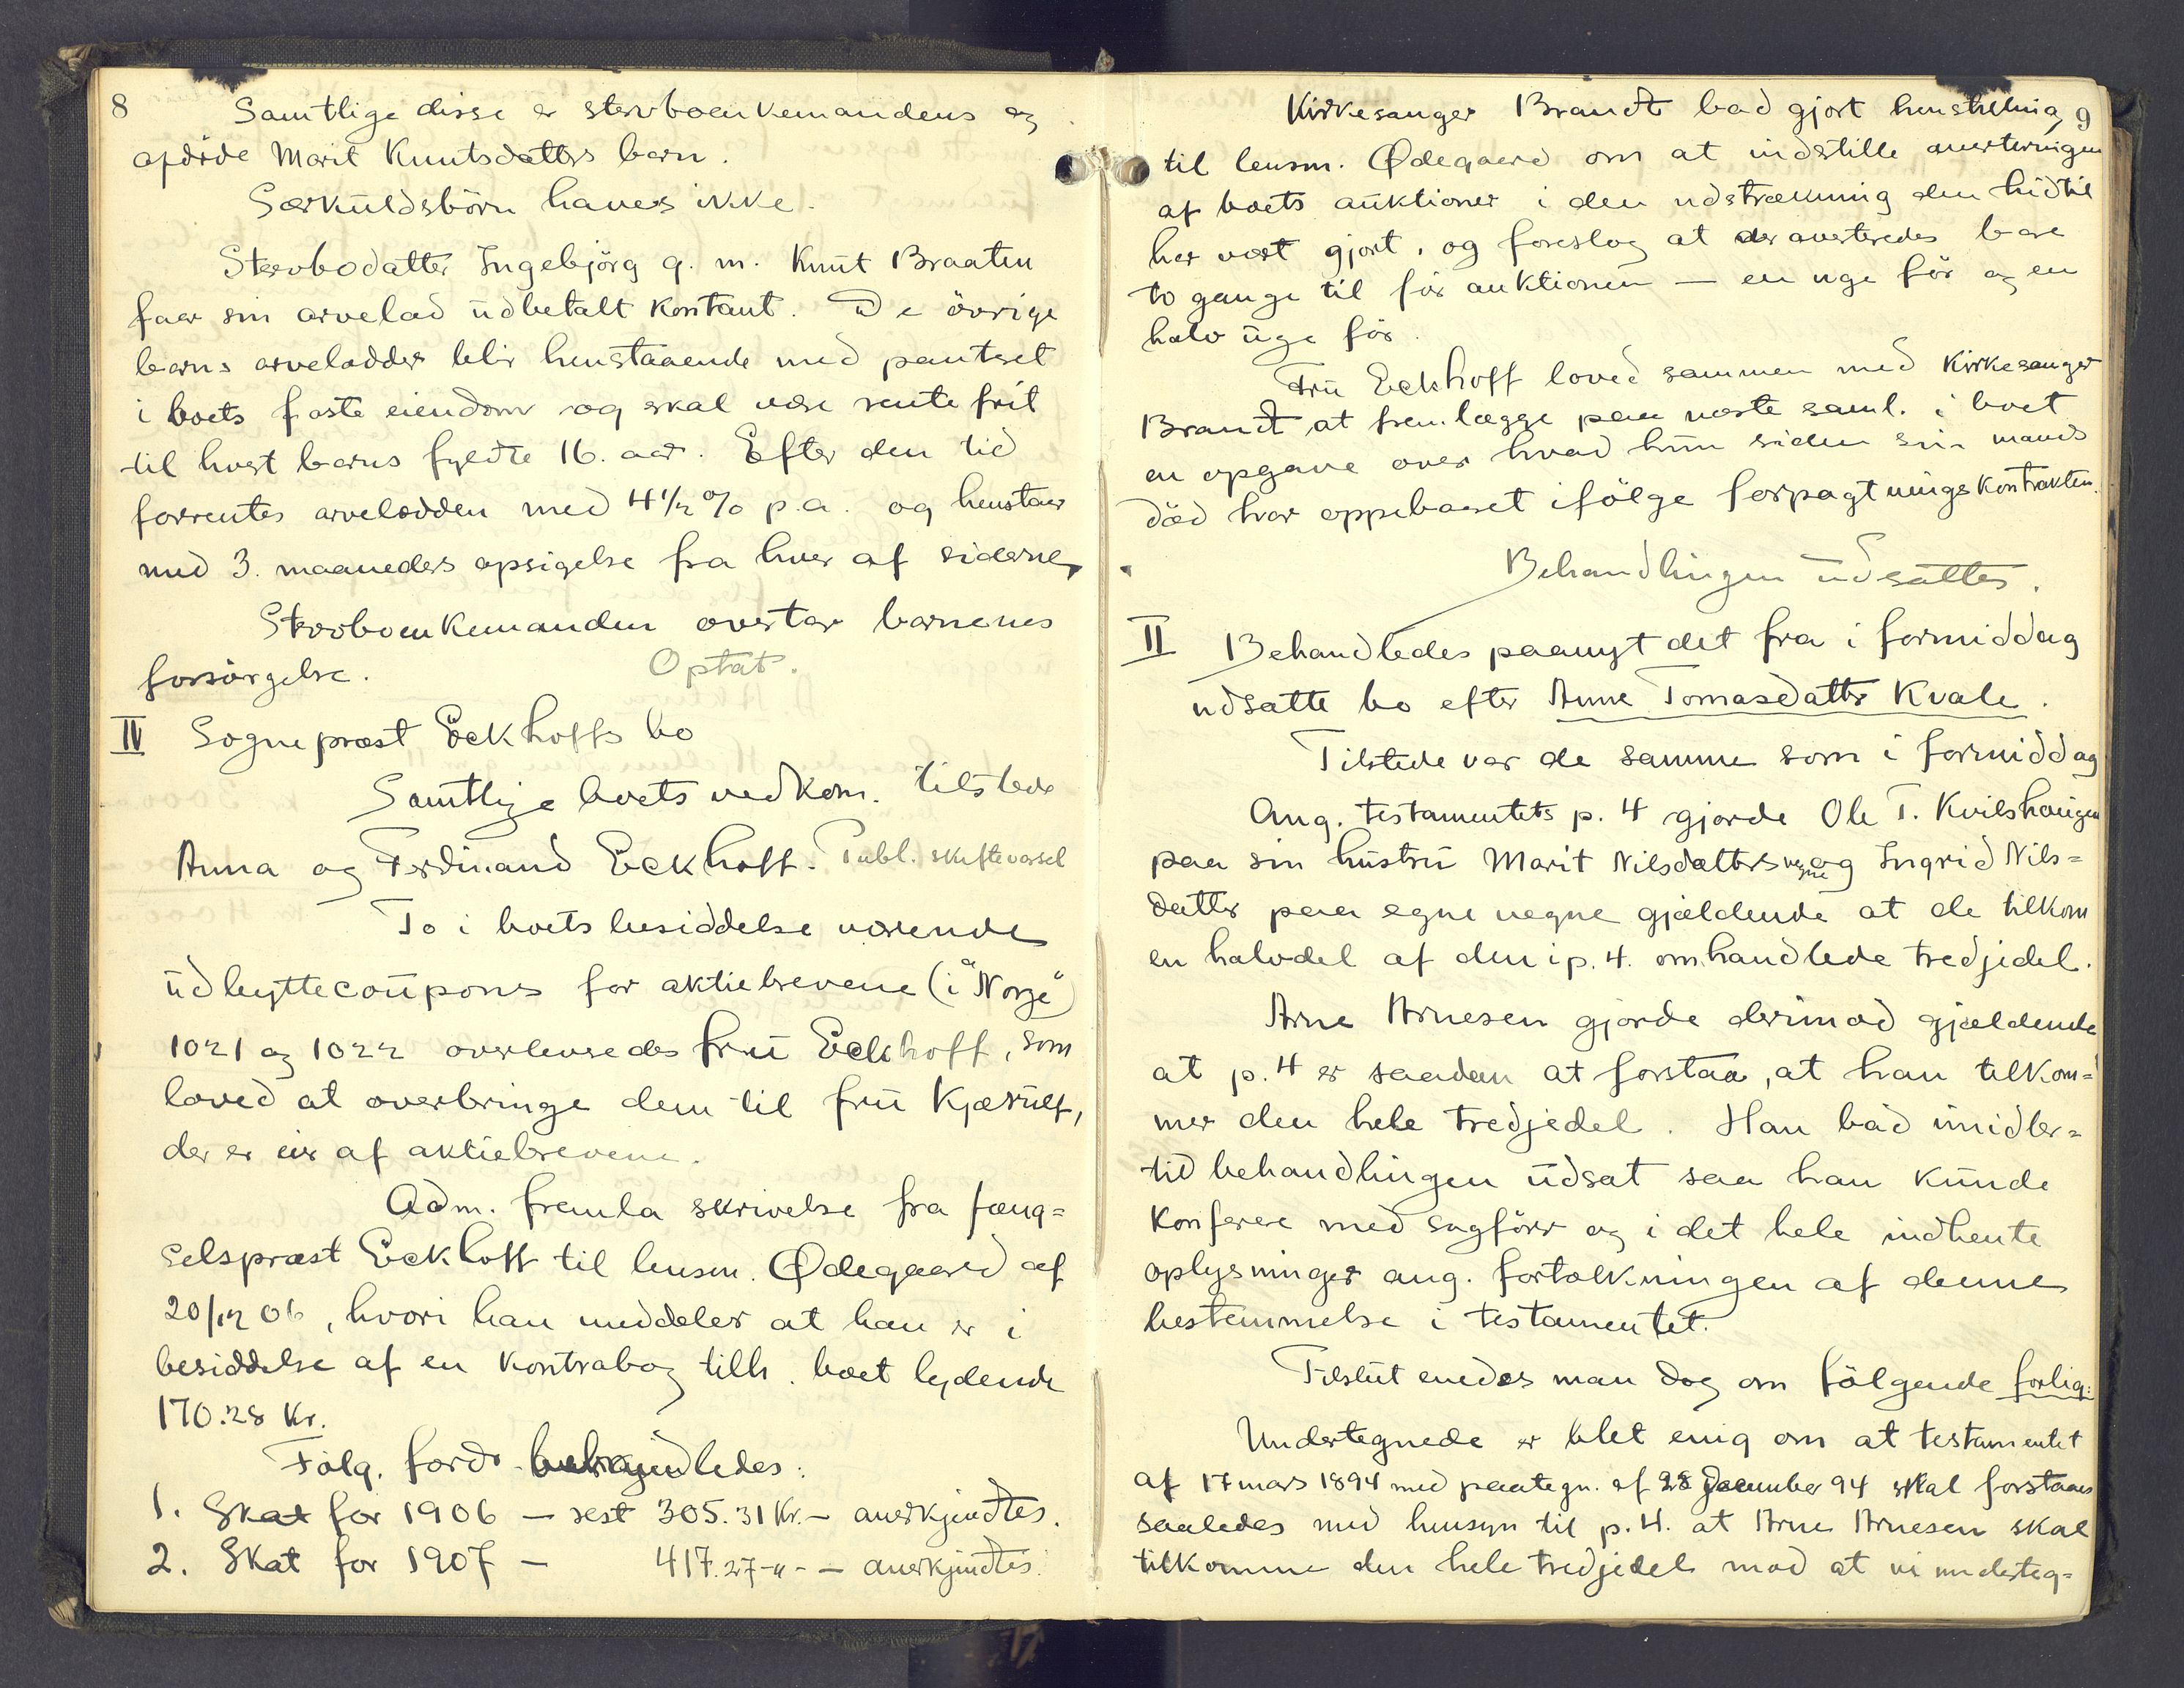 8
Samtlige disse er stervboenkemandens og
afdöde Marit Knutsdatters barn.
Særkuldsbörn haves ikke.
Stervbodatter Ingebjörg g. m. Knut Braaten
faar sin arvelod udbetalt kontant. De övrige
barns arvelodder blir henstaaende med pantret
i boets faste eiendom og skal være rentefrit
til hvert barns fyldte 16. aar. Efter den tid
forrentes arvelodden med 4½ % p.a. og henstaar
med 3. maaneders opsigelse fra hver af siderne,
Stervboenkemanden overtar barnenes
forsörgelse. Optat.
IV Sogneprest Eckhoffs bo
Samtlige boets vedkom. tilstede
Anna og Ferdinand Eckhoff. Publ. skiftevarsel
To i boets besiddelse værende
udbyttecoupons for aktiebrevene (i "Norge")
1021 og 1022 overleveredes fru Eckhoff, som
loved at overbringe dem til fru Kjærulf,
der er eier af aktiebrevene.
Adm. fremla skrivelse fra fæng=
selsprest Eckhoff til lensm. Ødegaard af
20/12 06, hvori han meddeler at han er i
besiddelse af en kontrabog tilh. boet lydende
170.28 Kr.
Følg. fordr. behandledes:
1. Skat for 1906 — rest 305.31 Kr. – anerkjendtes.
2. Skat for 1907 — 417.27 -"- – anerkjendtes.
Kirkesanger Brandt bad gjort henstilling 9
til lensm. Ødegaard om at indstille averteringen
af boets auktioner i den udstrækning den hidtil
har vært gjort, og foreslog at der averteredes bare
to gange til för auktionen — en uge för og en
halv uge för.
Fru Eckhoff loved sammen med Kirkesanger
Brandt at fremlægge paa næste saml. i boet
en opgave over hvad hun siden sin mands
död har oppebaaret ifölge forpagtningskontrakten.
Behandlingen udsattes.
II Behandledes paanyt det fra i formiddag
udsatte bo efter Anne Tomasdatter Kvale.
Tilstede var de samme som i formiddag
Ang. testamentets p. 4 gjorde Ole T. Kvilshaugen
paa sin hustru Marit Nilsdatters vegne og Ingrid Nils=
datter paa egne vegne gjældende at de tilkom
en halvdel af den i p. 4. omhandlede tredjedel.
Arne Arnesen gjorde derimod gjældende
at p. 4 er saadan at forstaa, at han tilkom=
mer den hele tredjedel. Han bad imidler=
tid behandlingen udsat saa han kunde
konferere med sagförer og i det hele indhente
oplysninger ang. fortolkningen af denne
bestemmelse i testamentet.
Tilslut enedes man dog om fölgende forlig:
Undertegnede er blet enig om at testamentet
af 17 mars 1894 med paategn. af 28 december 94 skal forstaaes
saaledes med hensyn til p. 4. at Arne Arnesen skal
tilkomme den hele tredjedel mod at vi underteg=